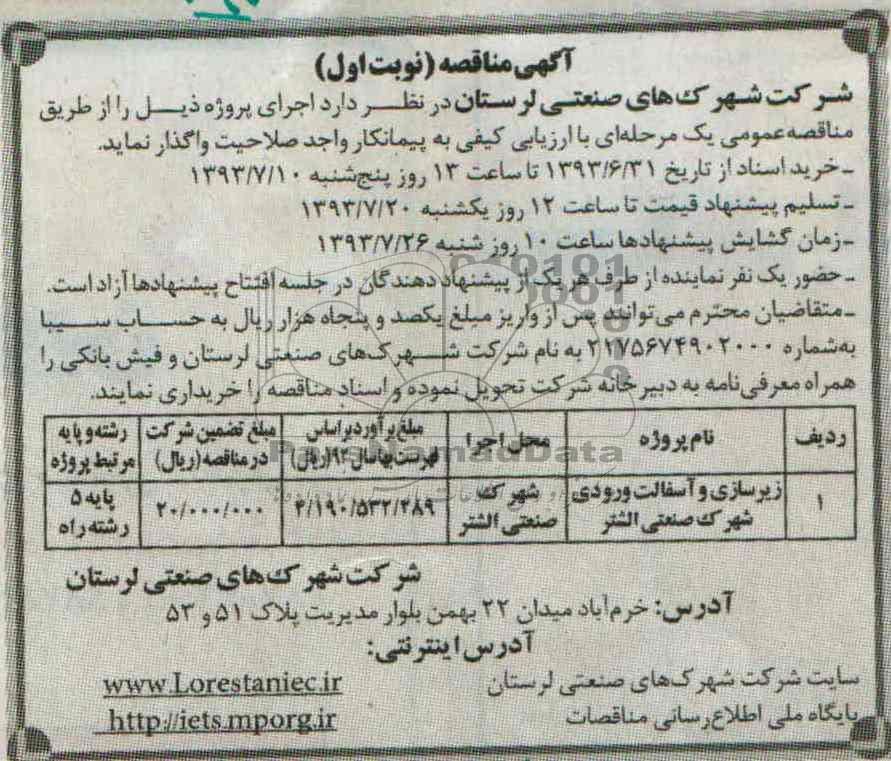 آگهی مناقصه (نوبت اول)
شرکت شهرک‌های صنعتی لرستان در نظر دارد اجرای پروژه ذیل را از طریق
مناقصه عمومی یک مرحله‌ای با ارزیابی کیفی به پیمانکار واجد صلاحیت واگذار نماید.
- خرید اسناد از تاریخ ۱۳۹۳/۶/۳۱ تا ساعت ۱۳ روز پنج‌شنبه ۱۳۹۳/۷/۱۰
- تسلیم پیشنهاد قیمت تا ساعت ۱۲ روز یکشنبه ۱۳۹۳/۷/۲۰
- زمان گشایش پیشنهادها ساعت ۱۰ روز شنبه ۱۳۹۳/۷/۲۶
- حضور یک نفر نماینده از طرف هر یک از پیشنهاد دهندگان در جلسه افتتاح پیشنهادها آزاد است.
- متقاضیان محترم می‌توانند پس از واریز مبلغ یکصد و پنجاه هزار ریال به حساب سیبا
به‌شماره ۲۱۷۵۶۷۴۹۰۲۰۰۰ به نام شرکت شهرک‌های صنعتی لرستان و فیش بانکی را
همراه معرفی‌نامه به دبیرخانه شرکت تحویل نموده و اسناد مناقصه را خریداری نمایند.
ردیف
نام پروژه
محل اجرا
مبلغ برآورد براساس
فهرست بها سال ۹۲ (ریال)
مبلغ تضمین شرکت
در مناقصه (ریال)
رشته و پایه
مرتبط پروژه
۱
زیرسازی و آسفالت ورودی
شهرک صنعتی الشتر
شهرک
صنعتی الشتر
۲۰/۰۰۰/۰۰۰
پایه ۵
رشته راه
شرکت شهرک‌های صنعتی لرستان
آدرس: خرم‌آباد میدان ۲۲ بهمن بلوار مدیریت پلاک ۵۱ و ۵۳
آدرس اینترنتی:
سایت شرکت شهرک‌های صنعتی لرستان www.Lorestaniec.ir
پایگاه ملی اطلاع‌رسانی مناقصات http://iets.mporg.ir
ParsNamadData